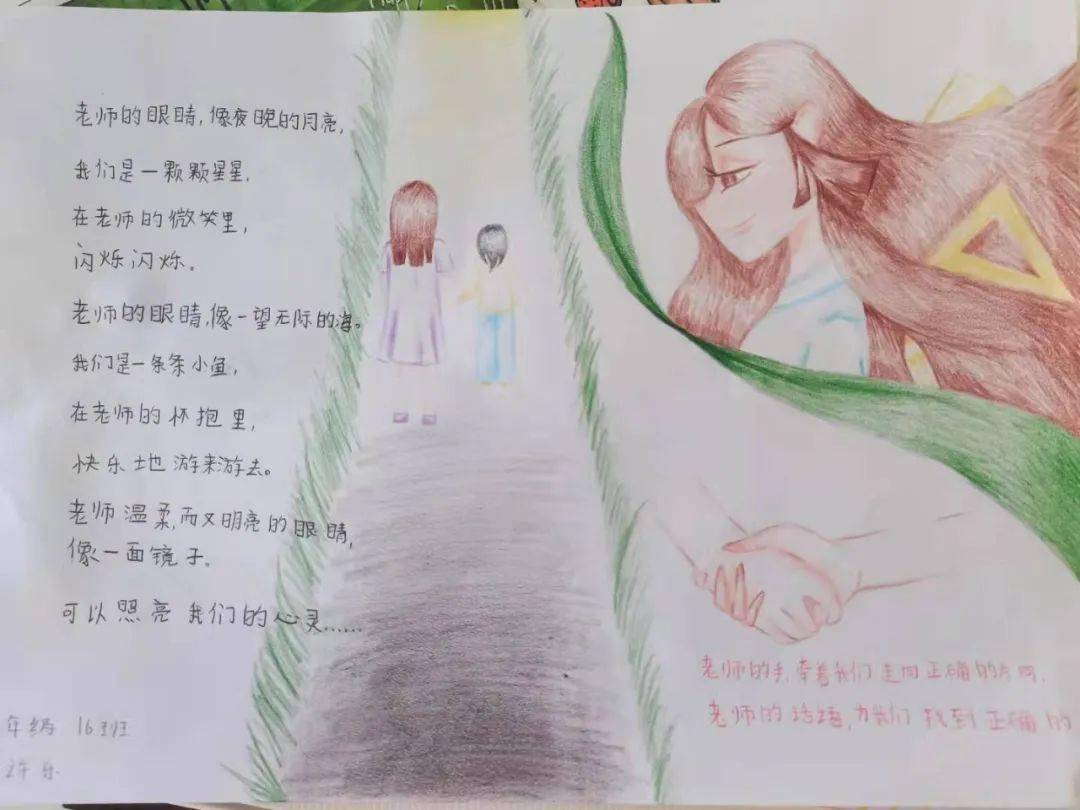 老师的眼睛,像夜晚的月亮,
我们是一颗颗星星.
在老师的微笑里,
闪烁闪烁.
老师的眼睛,像一望无际的海。
我们是一条条小鱼,
在老师的怀抱里,
快乐地游来游去。
老师温柔,而又明亮的眼睛,
像一面镜子.
可以照亮我们的心灵......
年级 16班
许乐
老师的手,牵着我们走向正确的方向.
老师的话语,为我们找到正确的